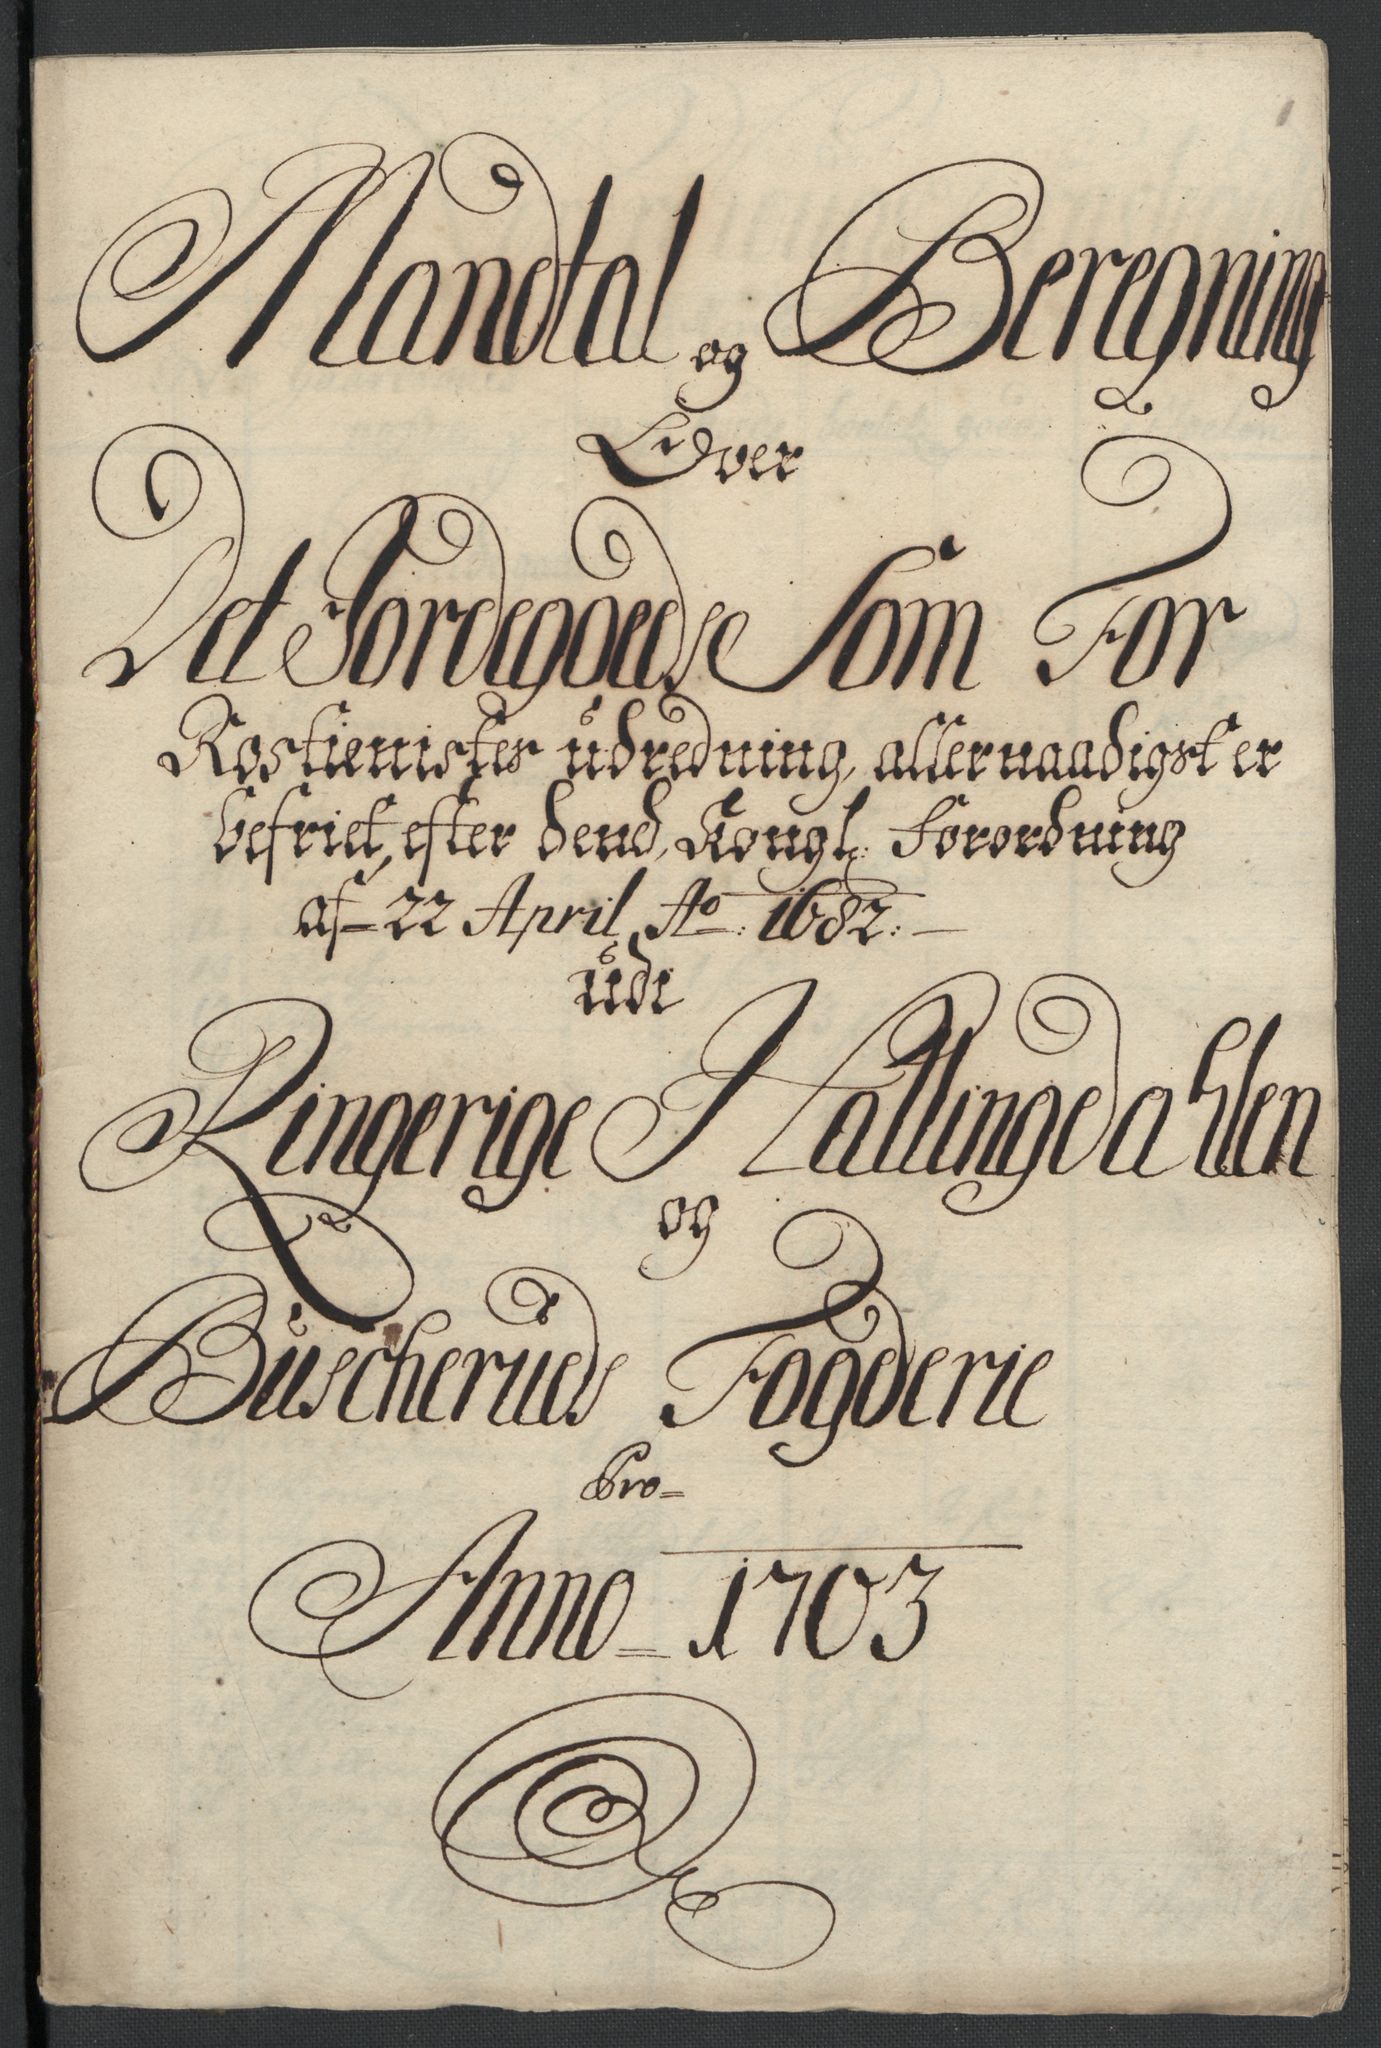 Mandtal og Beregning
Ofver
Det Jordegoeds Som For
Rostienistes udredning, allernaadigst er
befriet, efter dend, Kongl: forordning
af 22 April Ao: 1682:
udi
Ringerige Hallingdahlen
og
Buscheruds Fogderie
Pro
Anno 1703